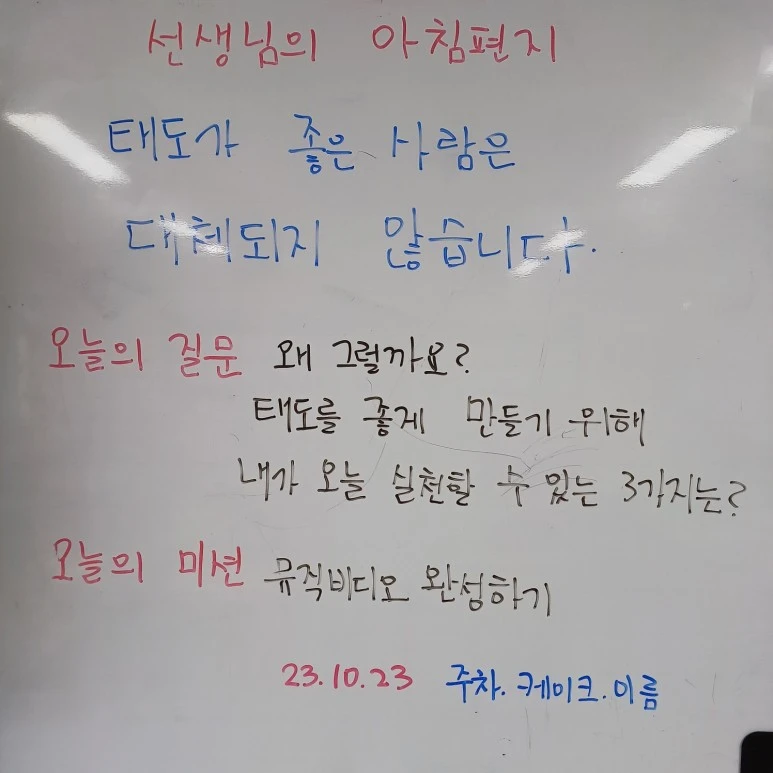 선생님의 아침편지
태도가 좋은 사람은
대체되지 않습니다.
오늘의 질문 왜 그럴까요?
태도를 좋게 만들기 위해
내가 오늘 실천할 수 있는 3가지는?
오늘의 미션 뮤직비디오 완성하기
23.10.23 주차.케이크.이름